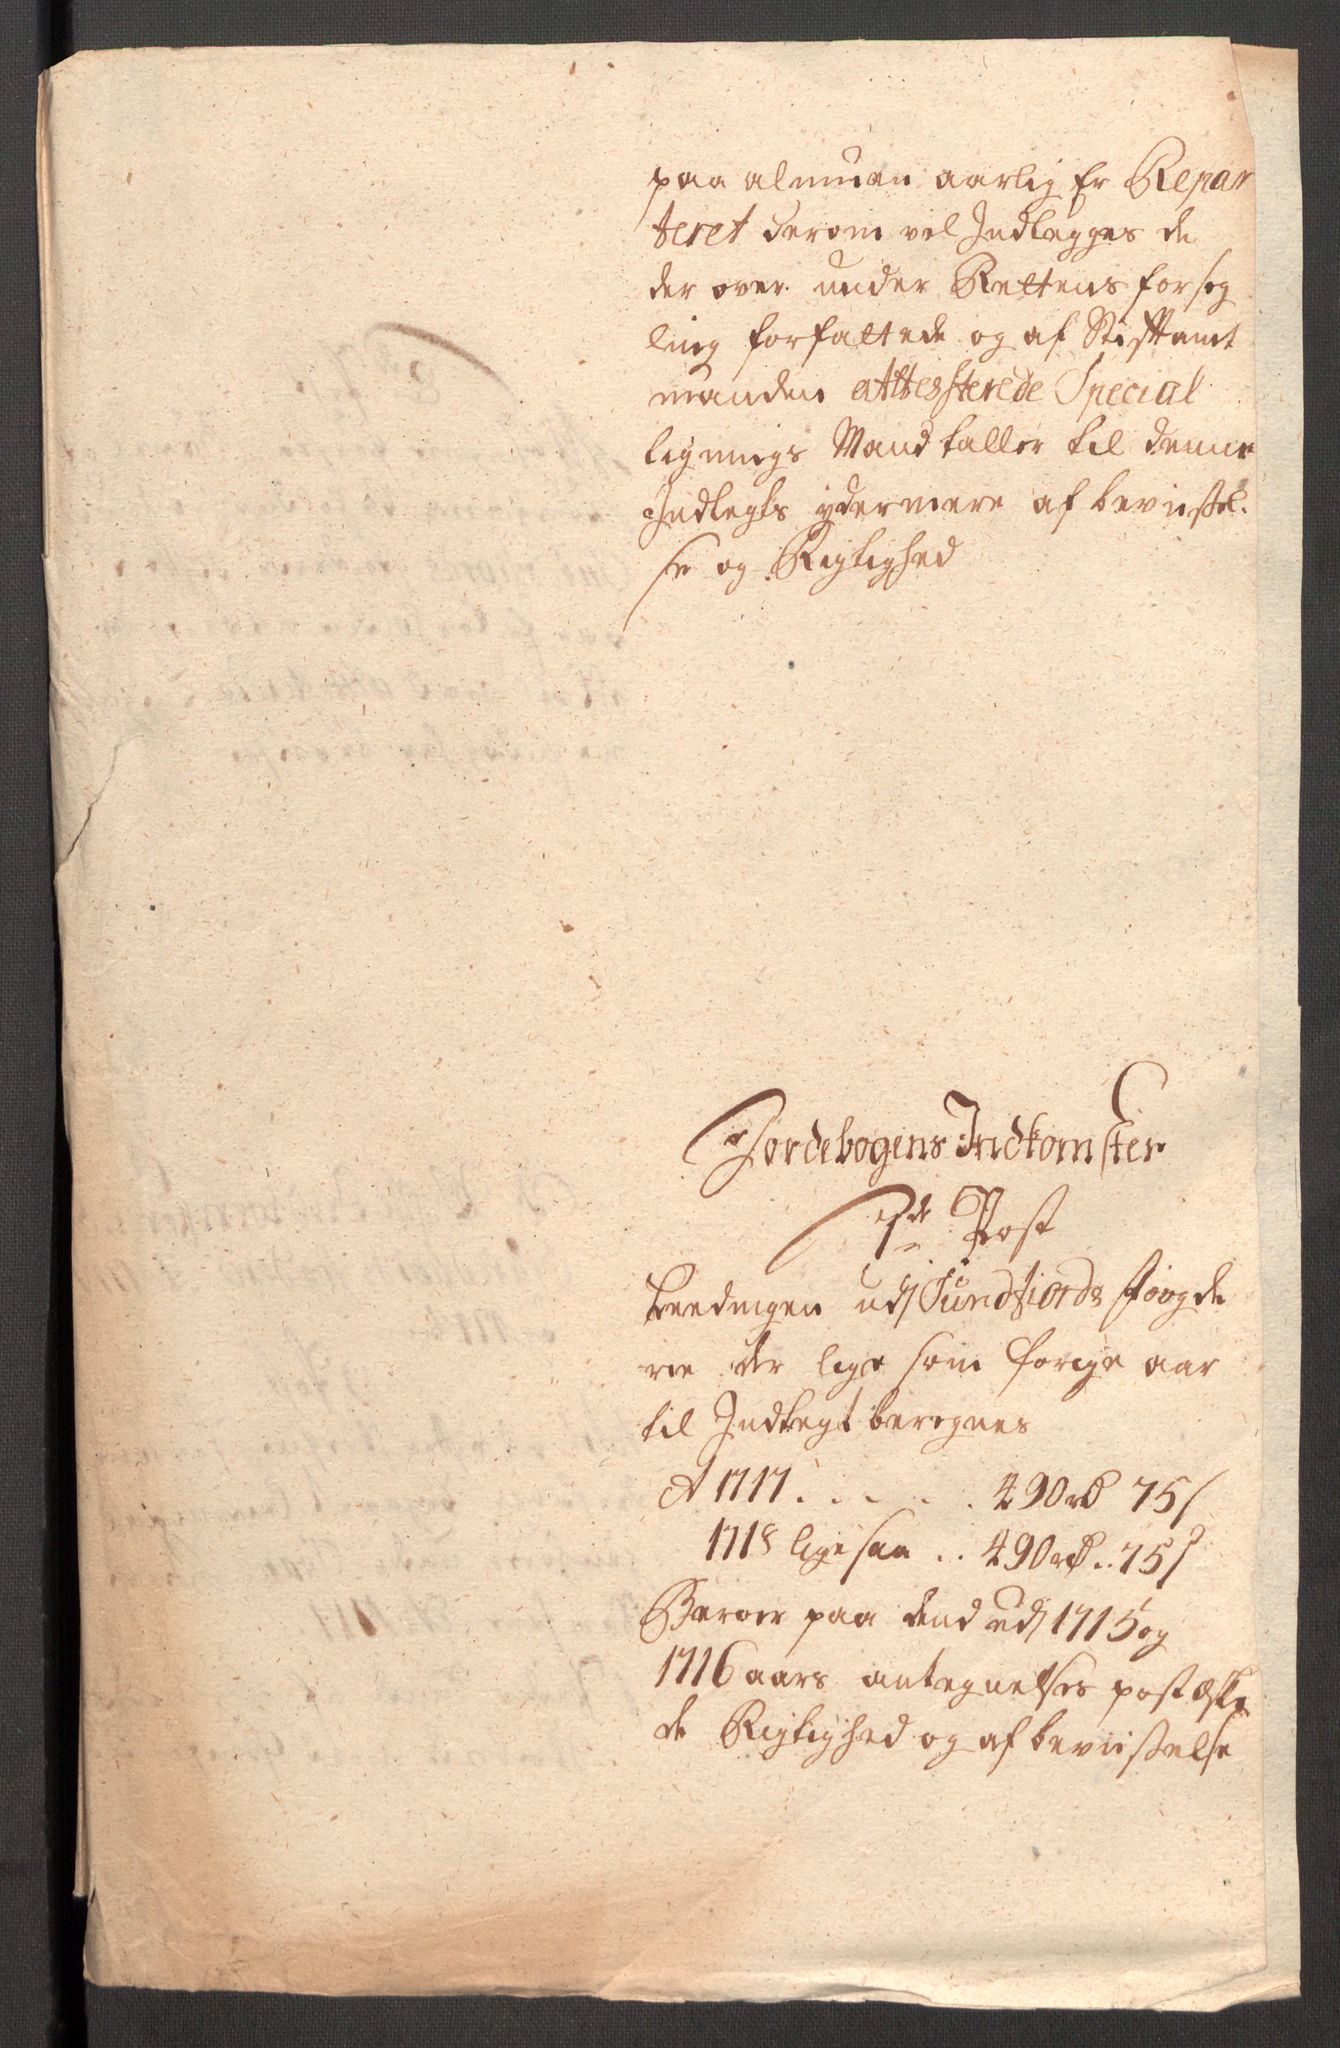 paa almuen aarlig er Repar
teret derom vel Indlegges de
der over under Rettens forseg
ling forfattede og af Stiftamt
manden attesterede Special
lignings Mandtaller til denne
Indtegts ydermere af beviisel.
se og Rigtighed
Jordebogens Indkomster
1de Post
Leedingen udj Sundfiords Foogde
rie der lige som forige aar
til Indtegt beregnes
A 1717 . . . . . 490 rd 75 s
1718 lige saa .. 490 rd .. 75 s
Beroer paa dend udj 1715 og
1716 aars antegnelses post æske
de Rigtighed og af beviisselse